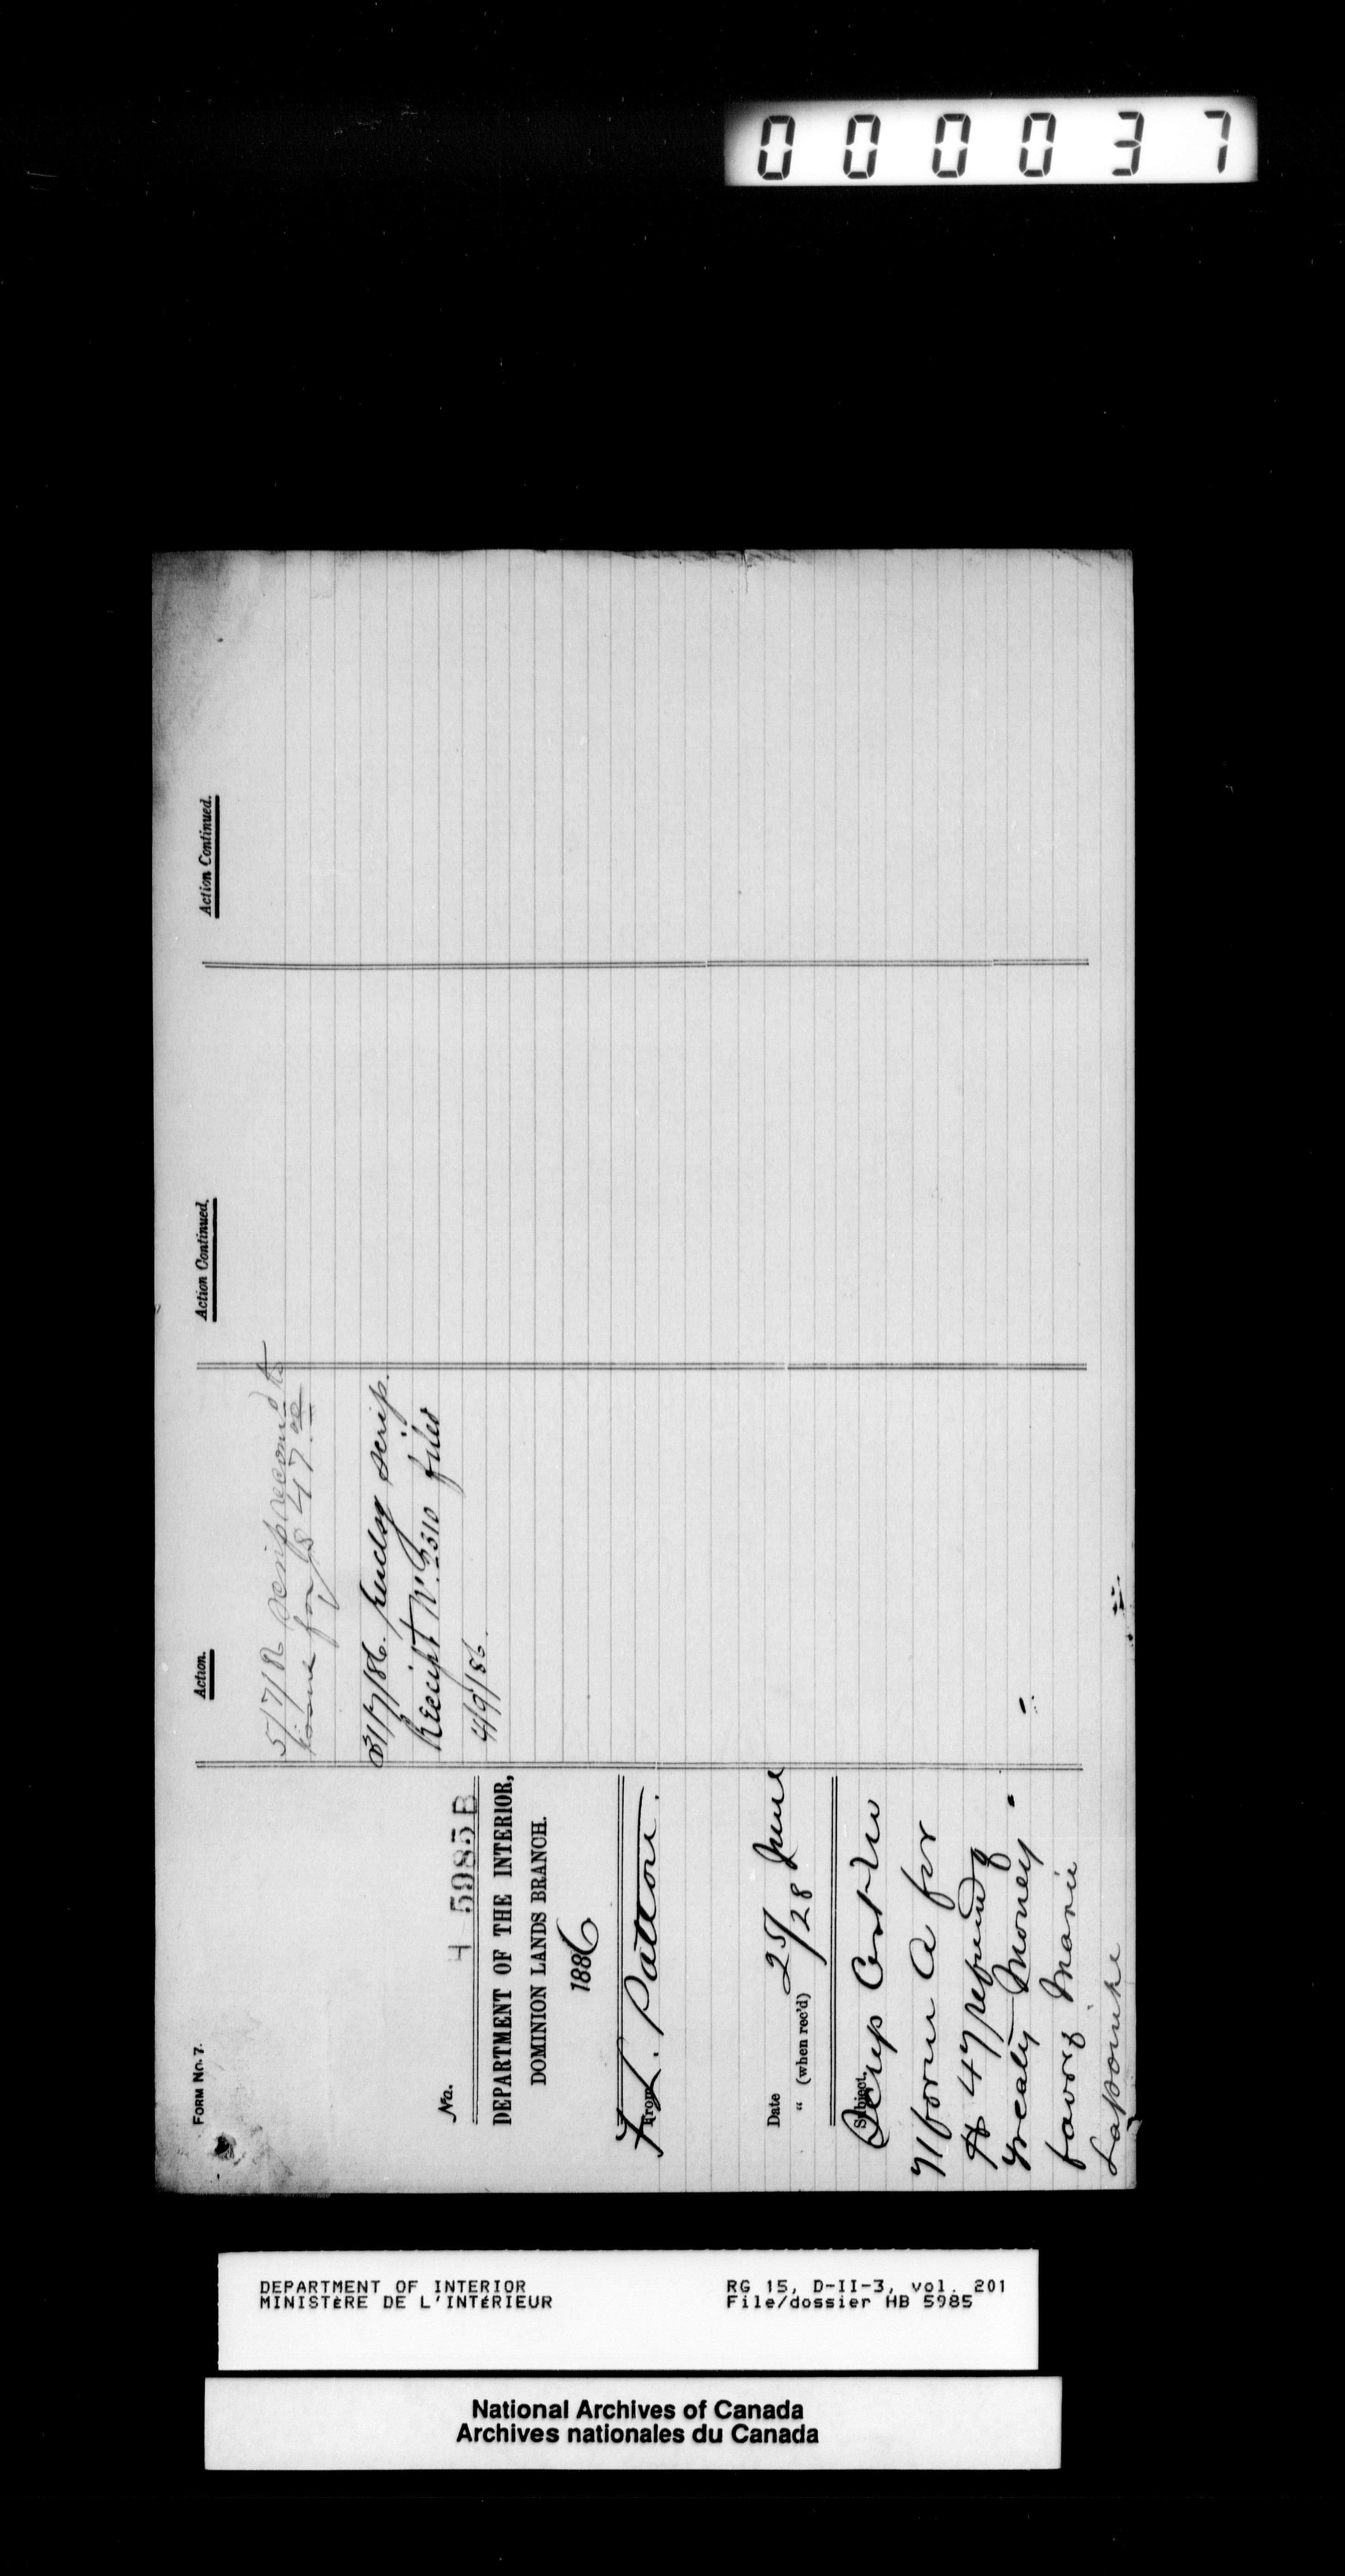 000037
FORM No. 7.
No. H 5985 B
DEPARTMENT OF THE INTERIOR,
DOMINION LANDS BRANCH.
1886
From
F. L. Patton.
Date 25/ June
" (when rec'd) /28
Subject.
Scrip Cert No
71 form A for
$ 47 refund of
Treaty Money -
favor of Marie
Lapointe
Action.
5/7/86 Scrip recomd to
issue for $ 47.00
31/7/86. scrip.
Receipt No. 2310 filed
4/9/86.
Action Continued.
Action Continued.
DEPARTMENT OF INTERIOR
MINISTÈRE DE L'INTÉRIEUR
RG 15, D-II-3, vol. 201
File/dossier HB 5985
National Archives of Canada
Archives nationales du Canada